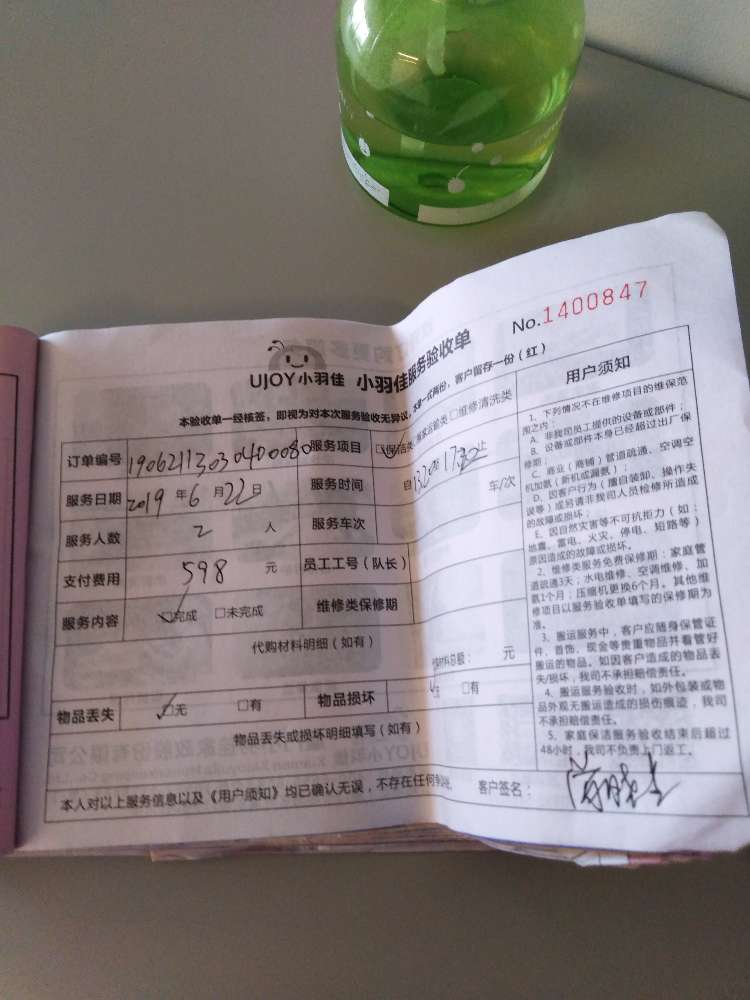 No.1400847
UJOY小羽佳 小羽佳服务验收单
本验收单一经核签，即视为对本次服务验收无异议，一式两份，客户留存一份（红）
订单编号 服务项目 □保洁类 □搬家运输类 □维修清洗类
服务日期 2019 年 6 月 22 日 服务时间 自 止 车/次
服务人数 2 人 服务车次
支付费用 598 元 员工工号（队长）
服务内容 □完成 □未完成 维修类保修期
代购材料明细（如有）
材料总额： 元
物品丢失 □无 □有 物品损坏 □有
物品丢失或损坏明细填写（如有）
本人对以上服务信息以及《用户须知》均已确认无误，不存在任何争议。 客户签名：
用户须知
1、下列情况不在维修项目的维保范
围之内：
A、非我司员工提供的设备或部件；
B、设备或部件本身已经超过出厂保
修期；
C、商业（商铺）管道疏通、空调空
机加氨（新机或漏氨）；
D、因客户行为（擅自装卸、操作失
误等）或另请非我司人员检修所造成
的故障或损坏；
E、因自然灾害等不可抗拒力（如：
地震、雷电、火灾、停电、短路等）
原因造成的故障或损坏。
2、维修类服务免费保修期：家庭管
道疏通3天；水电维修、空调维修、加
氨1个月；压缩机更换6个月。其他维
修项目以服务验收单填写的保修期为
准。
3、搬运服务中，客户应随身保管证
件、首饰、现金等贵重物品并看管好
搬运的物品。如因客户造成的物品丢
失/损坏，我司不承担赔偿责任。
4、搬运服务验收时，如外包装或物
品外观无搬运造成的损伤痕迹，我司
不承担赔偿责任。
5、家庭保洁服务验收结束后超过
48小时，我司不负责上门返工。